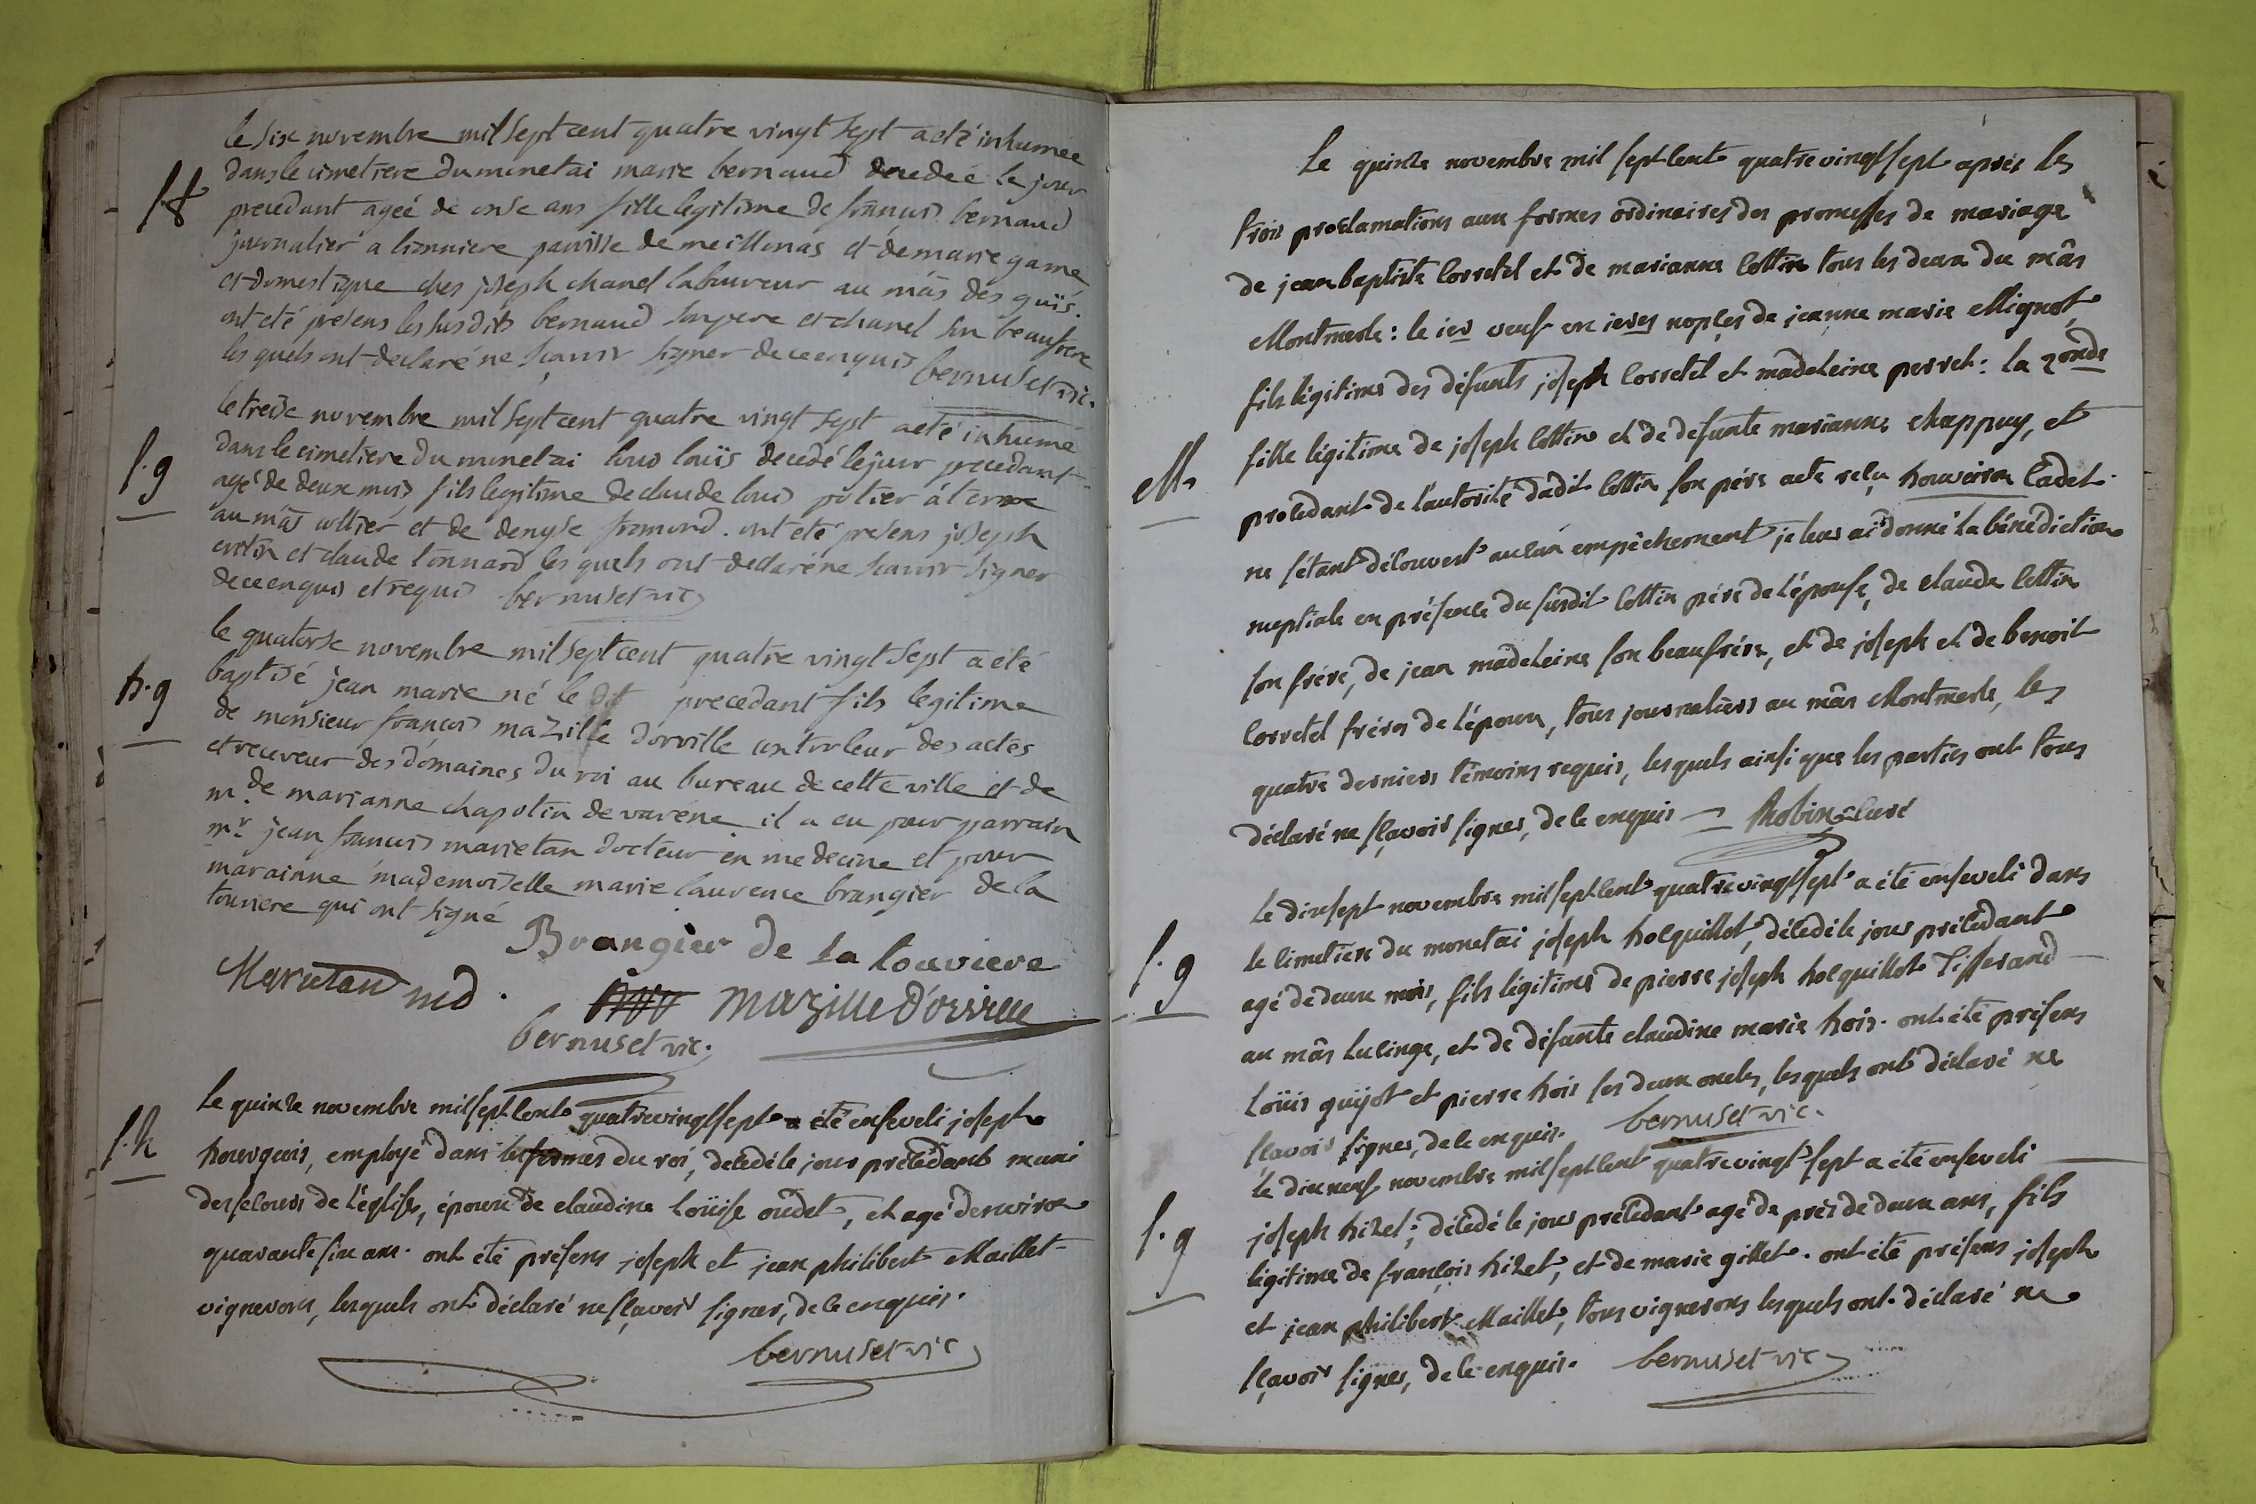 le six novembre mil sept cent quatre vingt sept a eté inhumée
dans le cimetiere du monetai marie bernaud decedeé le jour
precedant ageé de onse ans fille legitime de françois bernaud
journalier a lionniere paroisse de meillonas et de marie game
et domestique ches joseph chanel laboureur au mâs des guïs.
ont eté presens les susdits bernaud son pere et chanel son beaufrere
les quels ont declaré ne scavoir signer de ce enquis bernuset vic.
f.g
le treise novembre mil sept cent quatre vingt sept a eté inhumé
dans le cimetiere du monetai louis decedé le jour precedant
agé de deux mois fils legitime de claude louis potier à terre
au mâs cottier et de denyse . ont eté presens joseph
et claude tonnard les quels ont declaré ne scavoir signer
de ce enquis et requis bernuset vic
b.g
le quatorse novembre mil sept cent quatre vingt sept a été
baptisé jean marie né le precedant fils legitime
de monsieur françois mazille dorville controleur des actes
et receveur des domaines du roi au bureau de cette ville et de
m.de marianne chapotin de varéne il a eu pour parrain
m.r jean françois marietan docteur en medecine et pour
marainne mademoiselle marie laurence brangier de la
touviere qui ont signé
Brangier de la touviere
Marietan md.
Mazille d'orville
bernuset vic.
f.h
le quinze novembre mil sept cent quatrevingt sept a été enseveli joseph
bourgeois, employé dans les fermes du roi, decedé le jour précédant muni
des secours de l'église, époux de claudine loüise oudet, et agé d'environ
quarante six ans. ont été présens joseph et jean philibert Maillet
vignerons, lesquels ont déclaré ne sçavoir signer, de ce enquis.
bernuset vic
Le quinze novembre mil sept cent quatre vingt sept après les
trois proclamations aux formes ordinaires des promesses de mariage
de jean baptiste Corretel et de marianne Cottin tous les deux du mâs
Montmerle : le ier veuf en ieres noples de jeanne marie Mignot,
fils légitime des défunts joseph Corretel et madeleine perret : la 2onde
fille légitime de joseph Cottin et de defunte marianne chappuy, et
M
procedant de l'autorité dudit Cottin son père acte reçu bouveiron Cadet.
ne s'étant découvert aucun empêchement je leur ai donné la bénédiction
nuptiale en présence du susdit Cottin pére de l'épouse, de claude Cottin
son frére, de jean madeleine son beaufrére, et de joseph et de benoit
Corretel fréres de l'époux, tous journaliers au mâs Montmerle, les
quatre derniers témoins requis, lesquels ainsi que les parties ont tous
déclaré ne sçavoir signer, de ce enquis Robin curé
Le dix sept novembre mil sept cent quatrevingt sept a été enseveli dans
le cimetière du monetai joseph bocquillot, décedé le jour précédant
f.g
agé de deux mois, fils légitime de pierre joseph bocquillot Tisserand
au mâs Lucinge, et de défunte claudine marie bois. ont été présens
Loüis guyot et pierre bois ses deux oncles, lesquels ont déclaré ne
sçavoir signer, de ce enquis. bernuset vic.
le dix neuf novembre mil sept cent quatrevingt sept a été enseveli
f.g
joseph bizet, décedé le jour précédant agé de près de deux ans, fils
légitime de françois bizet, et de marie gillet. ont été présens joseph
et jean philibert Maillet, tous vignerons lesquels ont déclaré ne
sçavoir signer, de ce enquis. bernuset vic